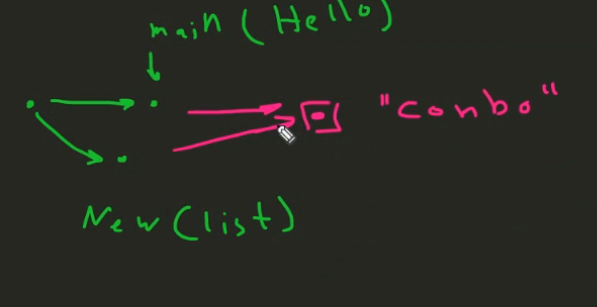 main (Hello)
"Conbo"
New (list)